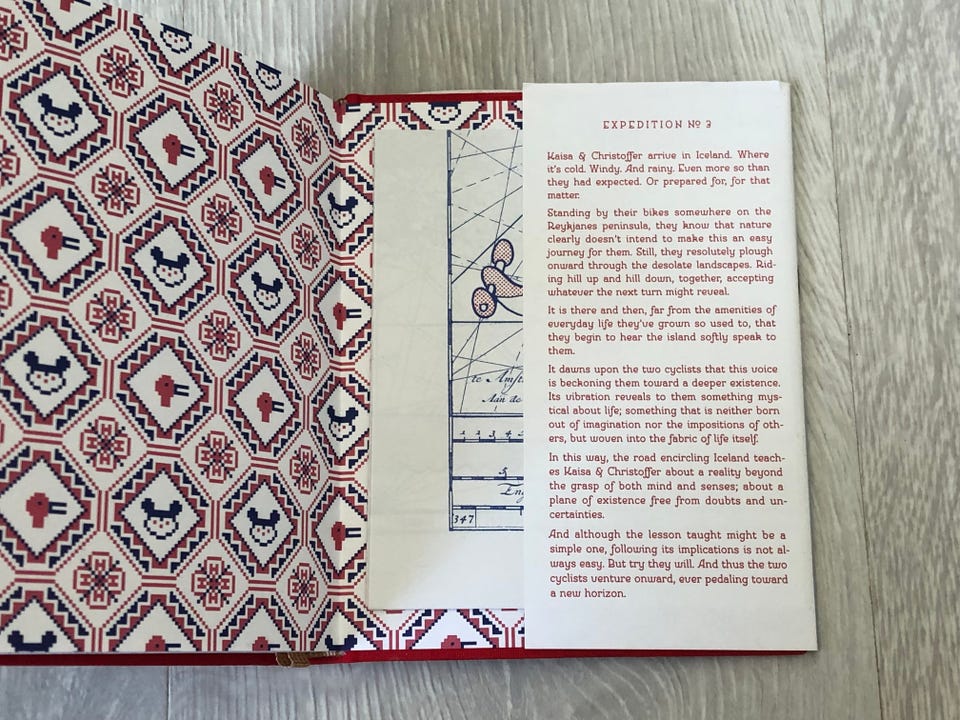 EXPEDITION Nº 3
Kaisa & Christoffer arrive in Iceland. Where
it's cold. Windy. And rainy. Even more so than
they had expected. Or prepared for, for that
matter.
Standing by their bikes somewhere on the
Reykjanes peninsula, they know that nature
clearly doesn't intend to make this an easy
journey for them. Still, they resolutely plough
onward through the desolate landscapes. Rid-
ing hill up and hill down, together, accepting
whatever the next turn might reveal.
It is there and then, far from the amenities of
everyday life they've grown so used to, that
they begin to hear the island softly speak to
them.
It dawns upon the two cyclists that this voice
is beckoning them toward a deeper existence.
Its vibration reveals to them something mys-
tical about life; something that is neither born
out of imagination nor the impositions of oth-
ers, but woven into the fabric of life itself.
In this way, the road encircling Iceland teach-
es Kaisa & Christoffer about a reality beyond
the grasp of both mind and senses; about a
plane of existence free from doubts and un-
certainties.
And although the lesson taught might be a
simple one, following its implications is not al-
ways easy. But try they will. And thus the two
cyclists venture onward, ever pedaling toward
a new horizon.
1 2 3 4 5
347